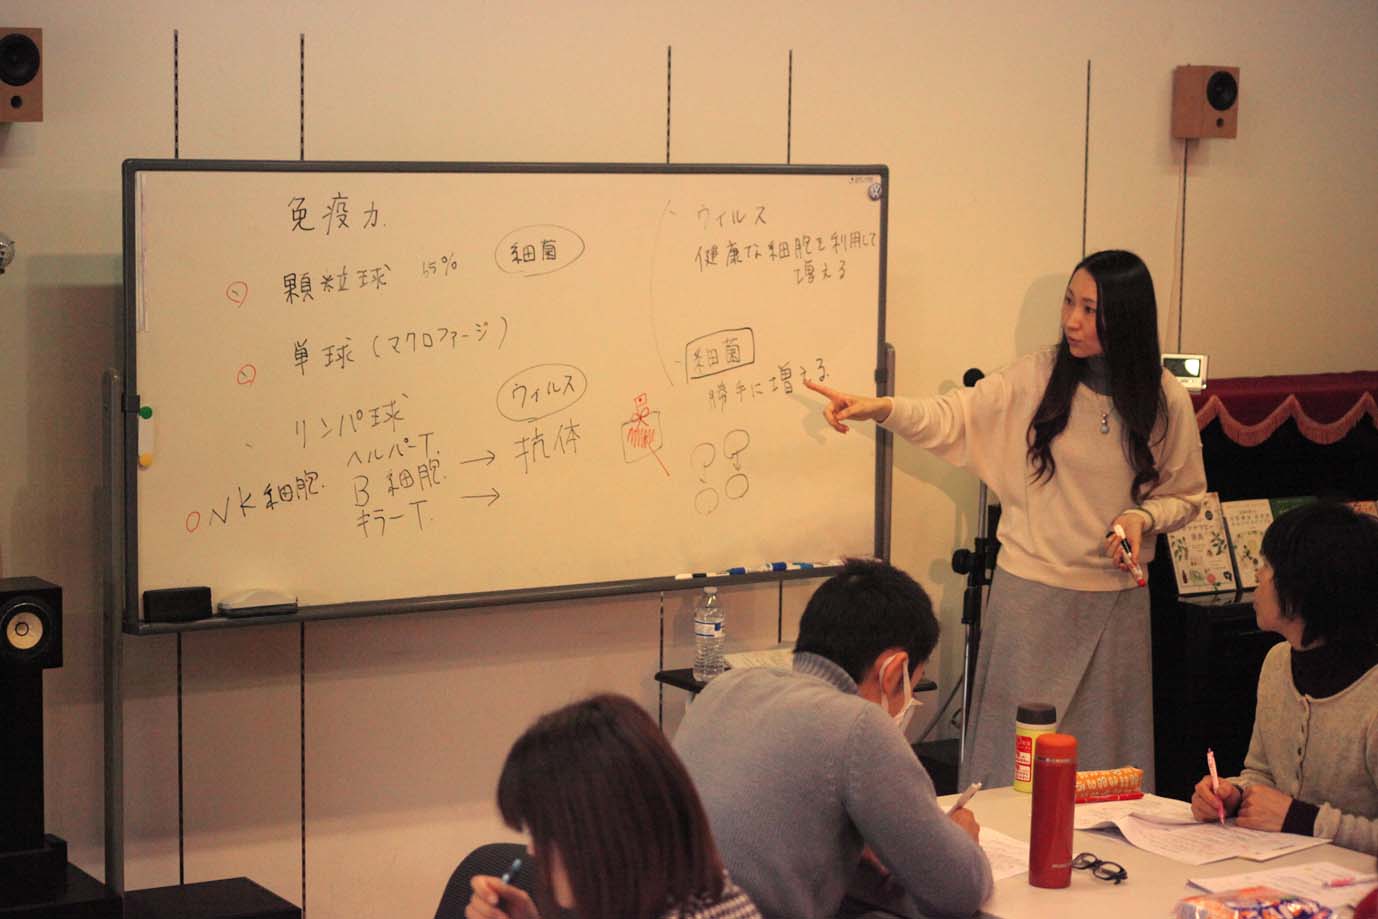 免疫力
顆粒球 55%
細菌
単球(マクロファージ)
リンパ球
ウィルス
ヘルパーT.
NK細胞. B細胞. → 抗体
キラーT. →
ウィルス
健康な細胞を利用して
増える
細菌
勝手に増える.